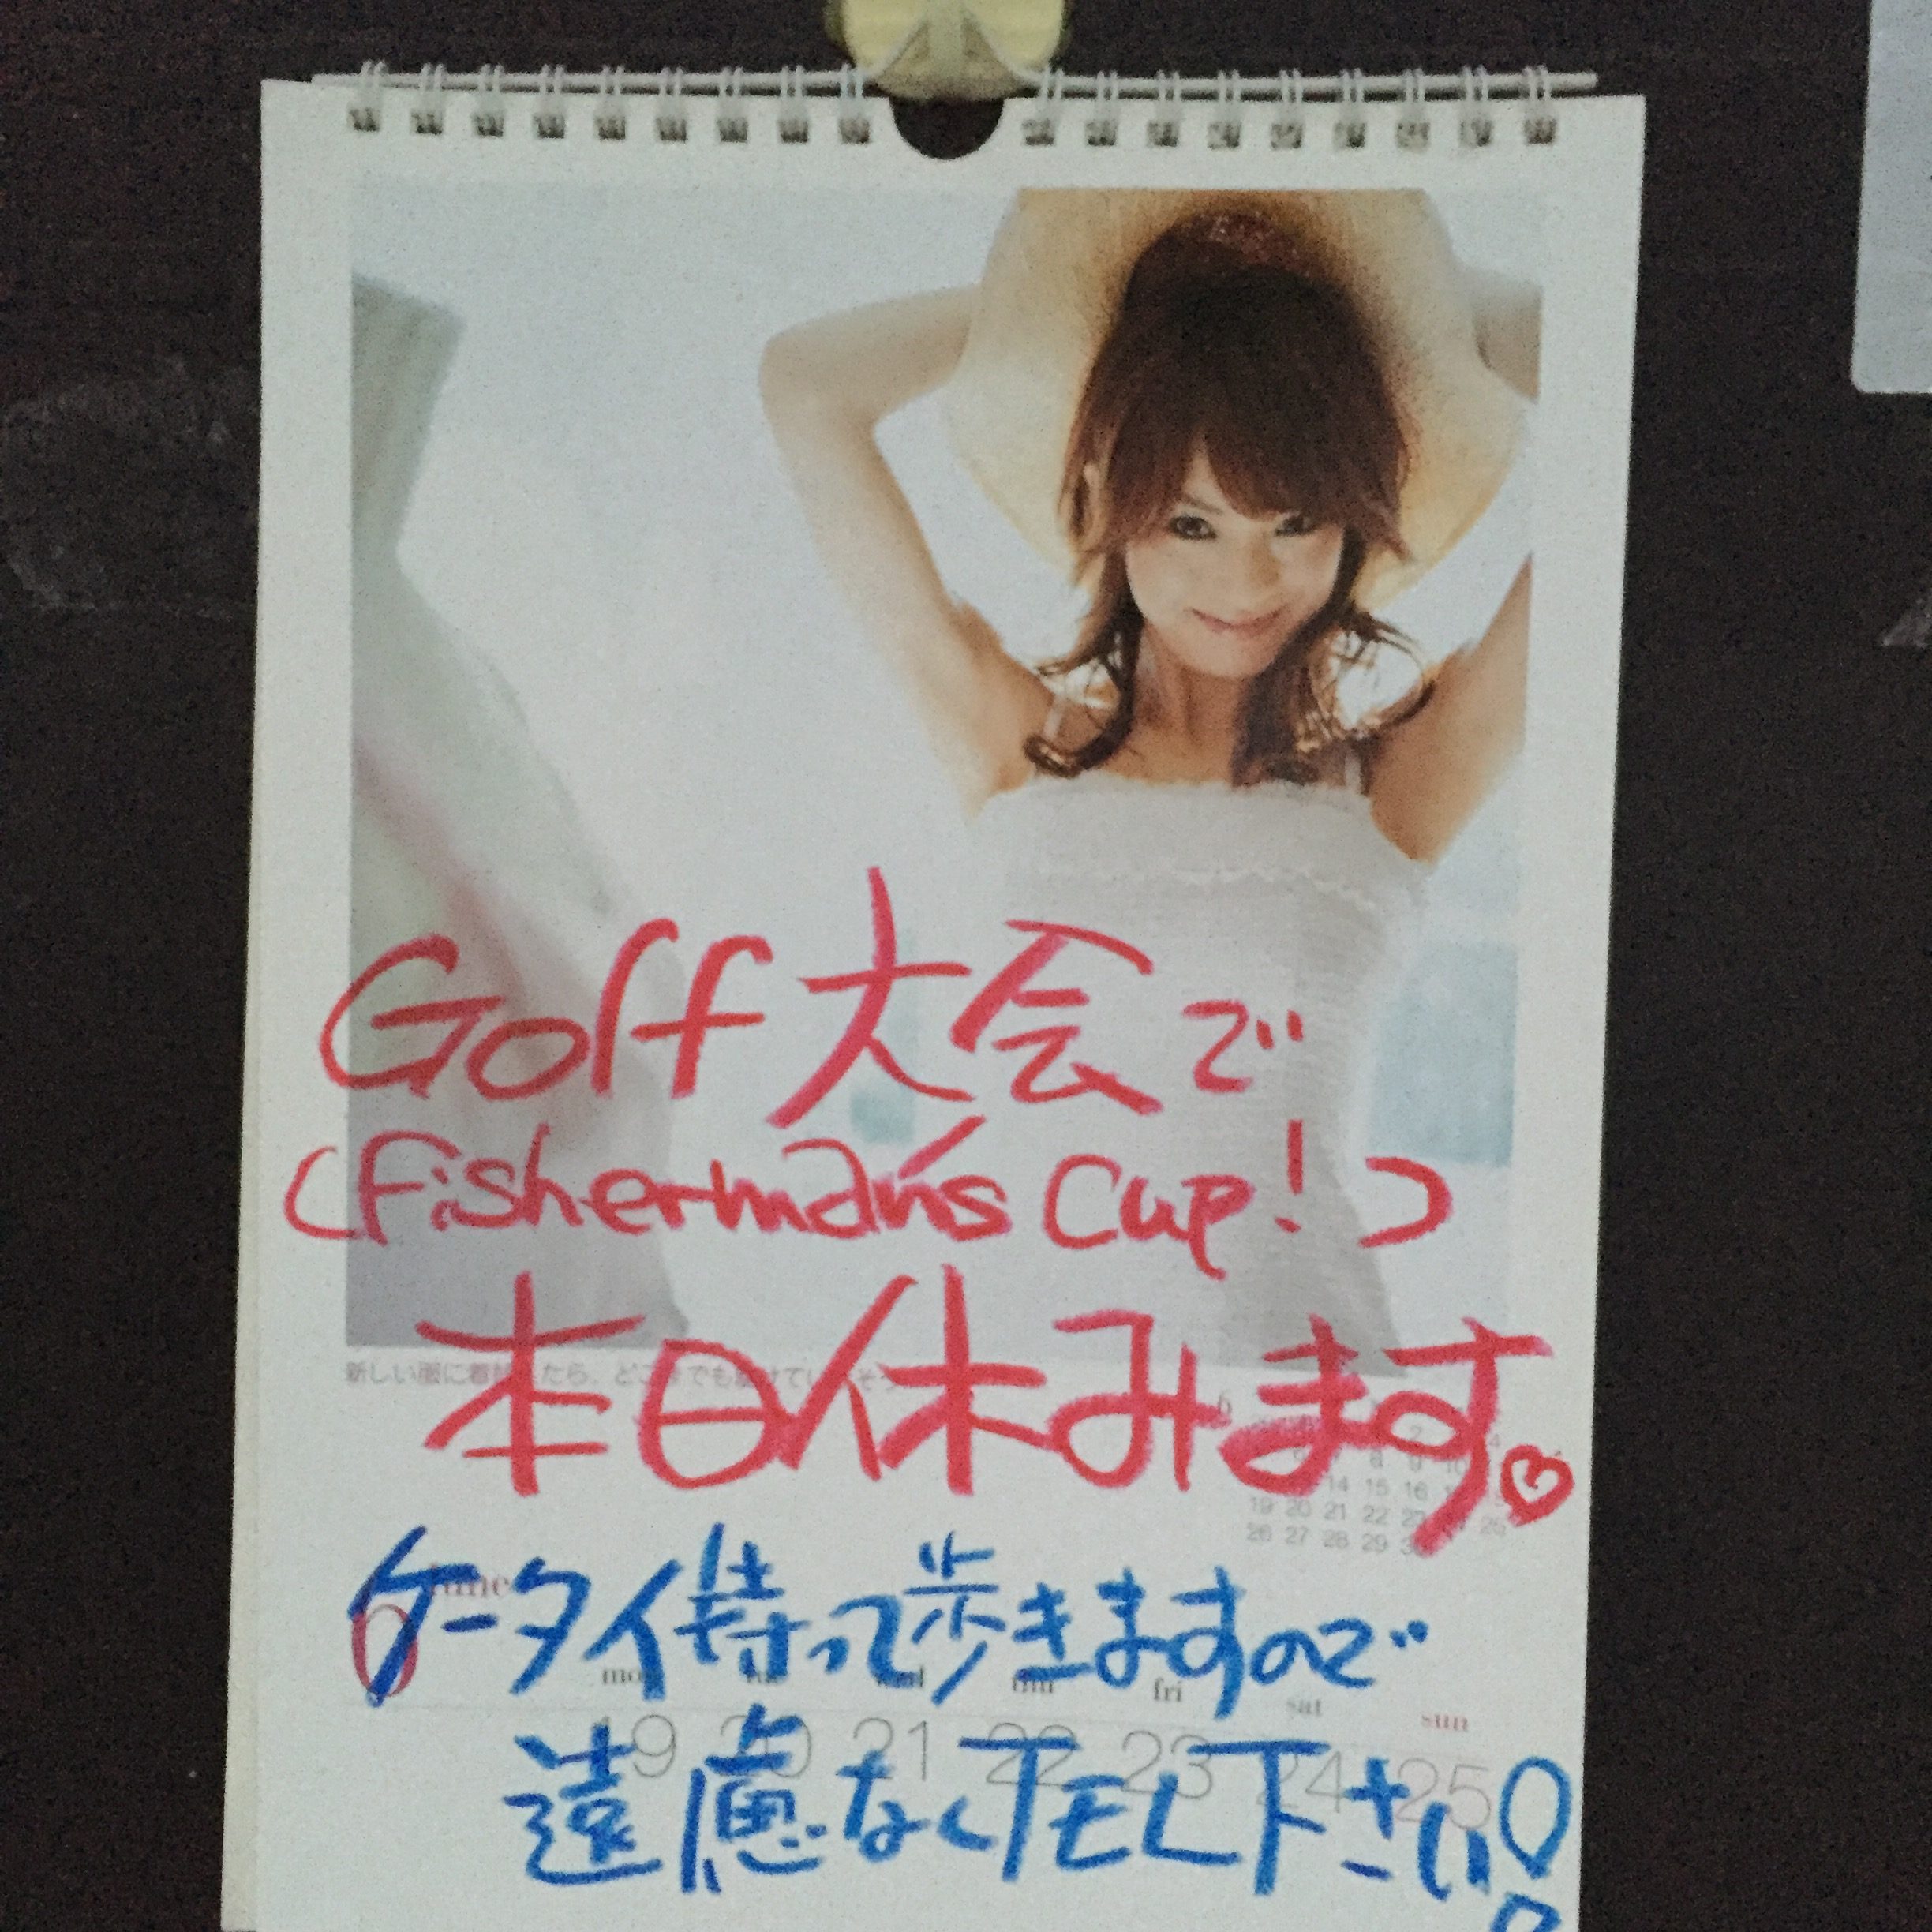 Goff大会で
(Fisherman's Cup!)
本日休みます。
新しい服に着替えたら、どこまでも駆けていけそう
6
7 8 9 10
14 15 16
19 20 21 22 23 25
26 27 28 29 30
ケータイ持って歩きますので
6 June
mon tue wed thu fri sat sun
19 20 21 22 23 24 25
遠慮なくTEL下さい!